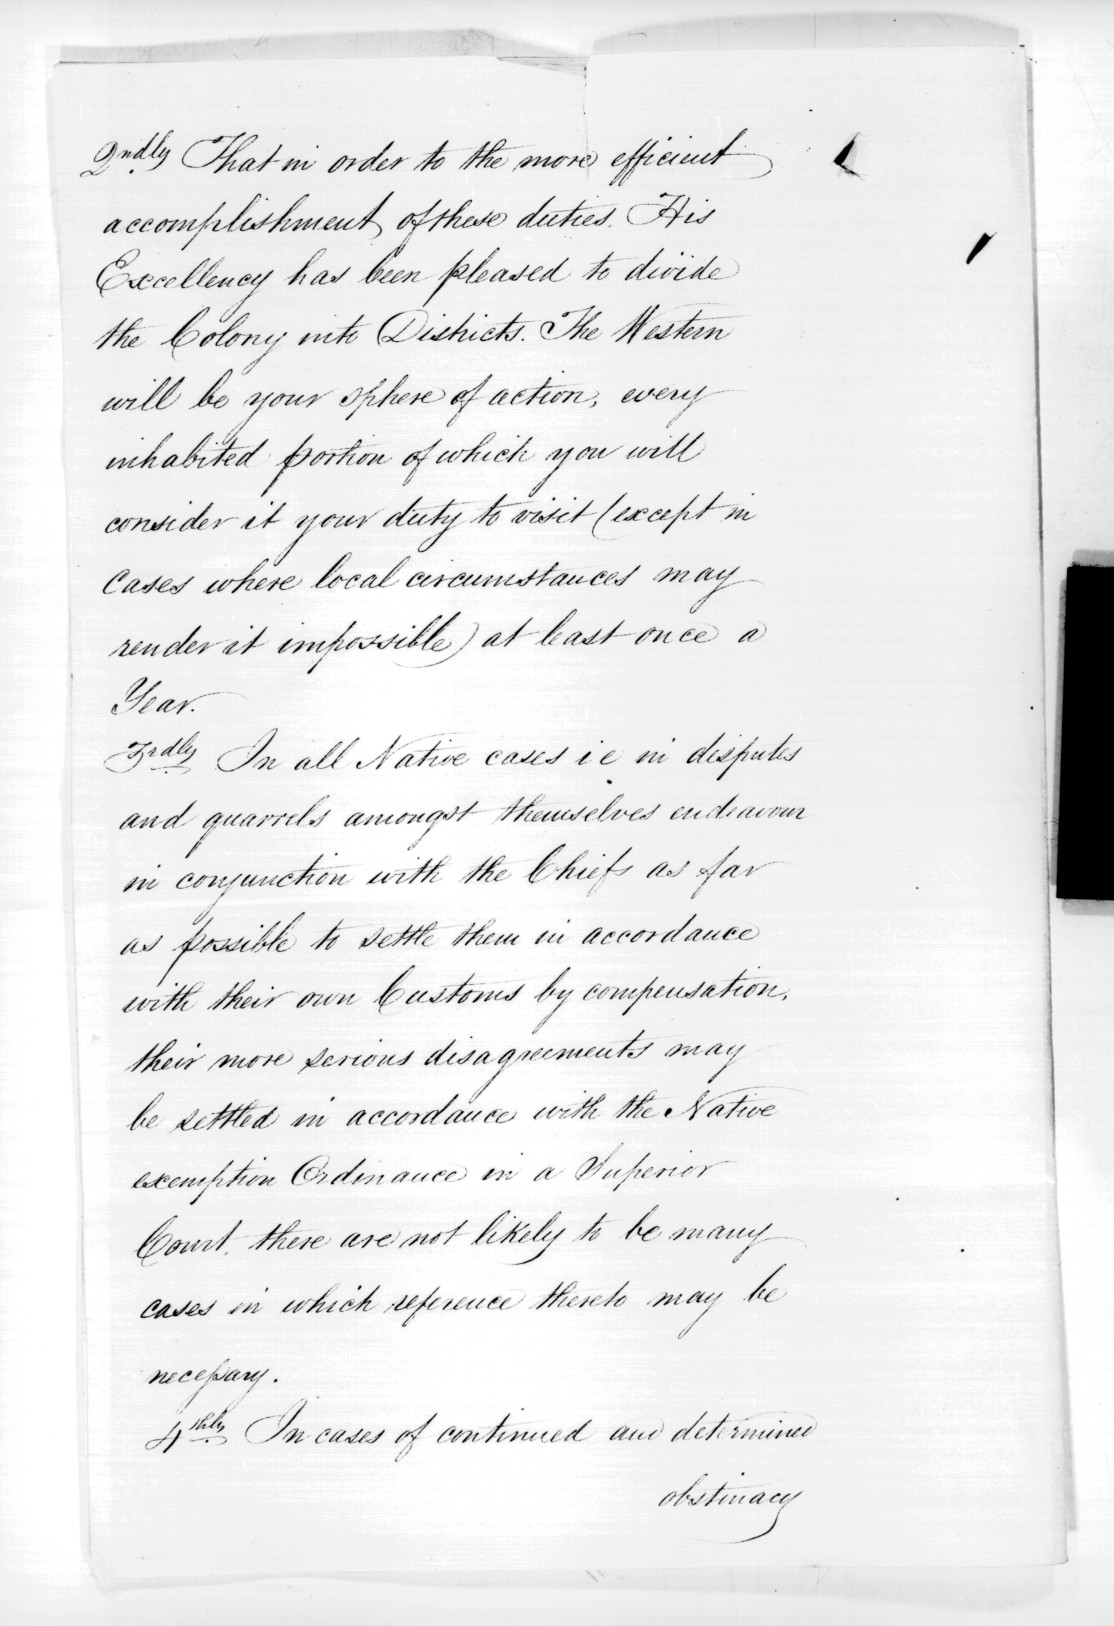 2ndly That in order to the more efficient
accomplishment of these duties. His
Excellency has been pleased to divide
the Colony into Districts. The Western
will be your sphere of action, every
inhabited portion of which you will
consider it your duty to visit (except in
cases where local circumstances may
render it impossible) at least once a
Year.
3rdly In all Native cases i e in disputes
and quarrels amongst themselves endeavour
in conjunction with the Chiefs as far
as possible to settle them in accordance
with their own Customs by compensation,
their more serious disagreements may
be settled in accordance with the Native
exemption Ordinance in a Superior
Court, there are not likely to be many
cases in which reference thereto may be
necessary.
4thly In cases of continued and determined
obstinacy